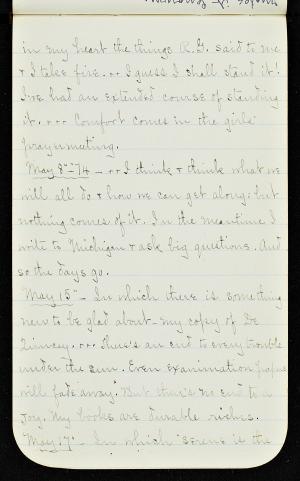 in my heart the things R.G. said to me
& I take fire. .. I guess I shall stand it!
I've had an extended course of standing
it. ... Comfort comes in the girls'
prayermeeting.
May 8"-74 - .. I think & think what we
will all do & how we can get along; but
nothing comes of it. In the meantime I
write to Michigan & ask big questions. And
so the days go.
May 15" - In which there is something
new to be glad about - my copy of De
Quincey. ... There's an end to every trouble
under the sun. Even examination papers
will fade away." But there's no end to a
joy. My books are durable riches.
May 17" - In which "serene is the